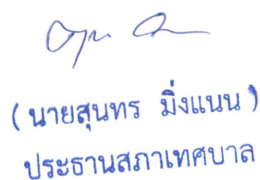 (นายสุนทร มิ่งแนน)
ประธานสภาเทศบาล